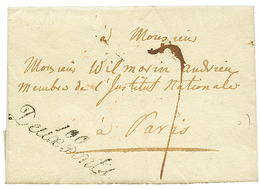 à Monsieur
Monsieur Wilmorin andrieu
Membre de l'Institut Nationale
à Paris
7
100
Deuxponts